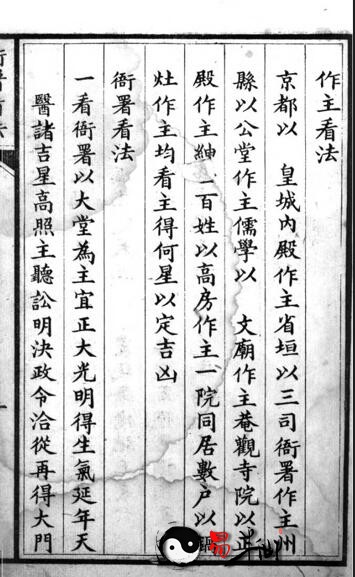 作主看法
京都以　皇城內殿作主省垣以三司衙署作主州
縣以公堂作主儒學以　文廟作主菴觀寺院以正
殿作主紳一百姓以高房作主一院同居數戶以鍋
灶作主均看主得何星以定吉凶
衙署看法
一看衙署以大堂為主宜正大光明得生氣延年天
醫諸吉星高照主聽訟明決政令洽從再得大門